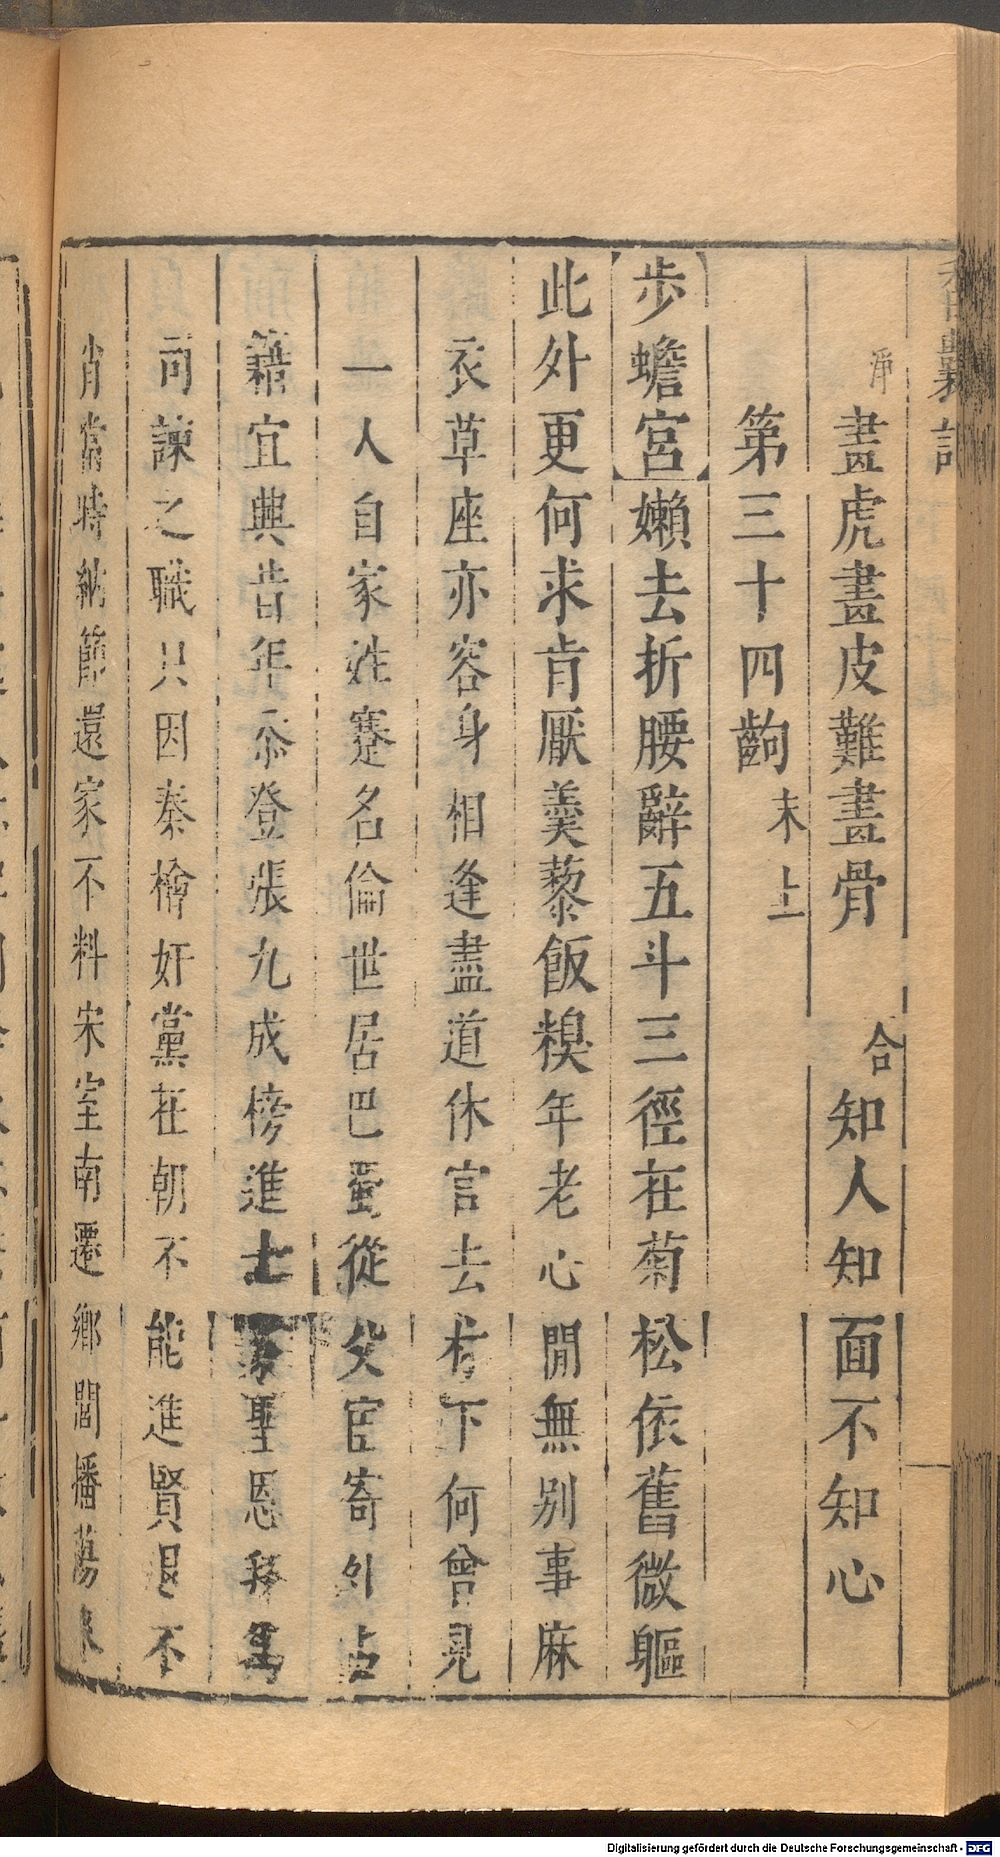 香囊記
淨 畫虎畫皮難畫骨 合 知人知面不知心
第三十四齣 末上
步蟾宮 嬾去折腰辭五斗三徑在菊松依舊微軀
此外更何求肯厭羹藜飯糗年老心閒無別事麻
衣草座亦容身相逢盡道休官去林下何曾見
一人自家姓蹇名倫世居巴蜀從父宦寄外
籍宜興昔年忝登張九成榜進士蒙聖恩移為
司諫之職只因秦檜奸黨在朝不能進賢退不
肖當時納節還家不料宋室南遷鄉閭播蕩
Digitalisierung gefördert durch die Deutsche Forschungsgemeinschaft - DFG